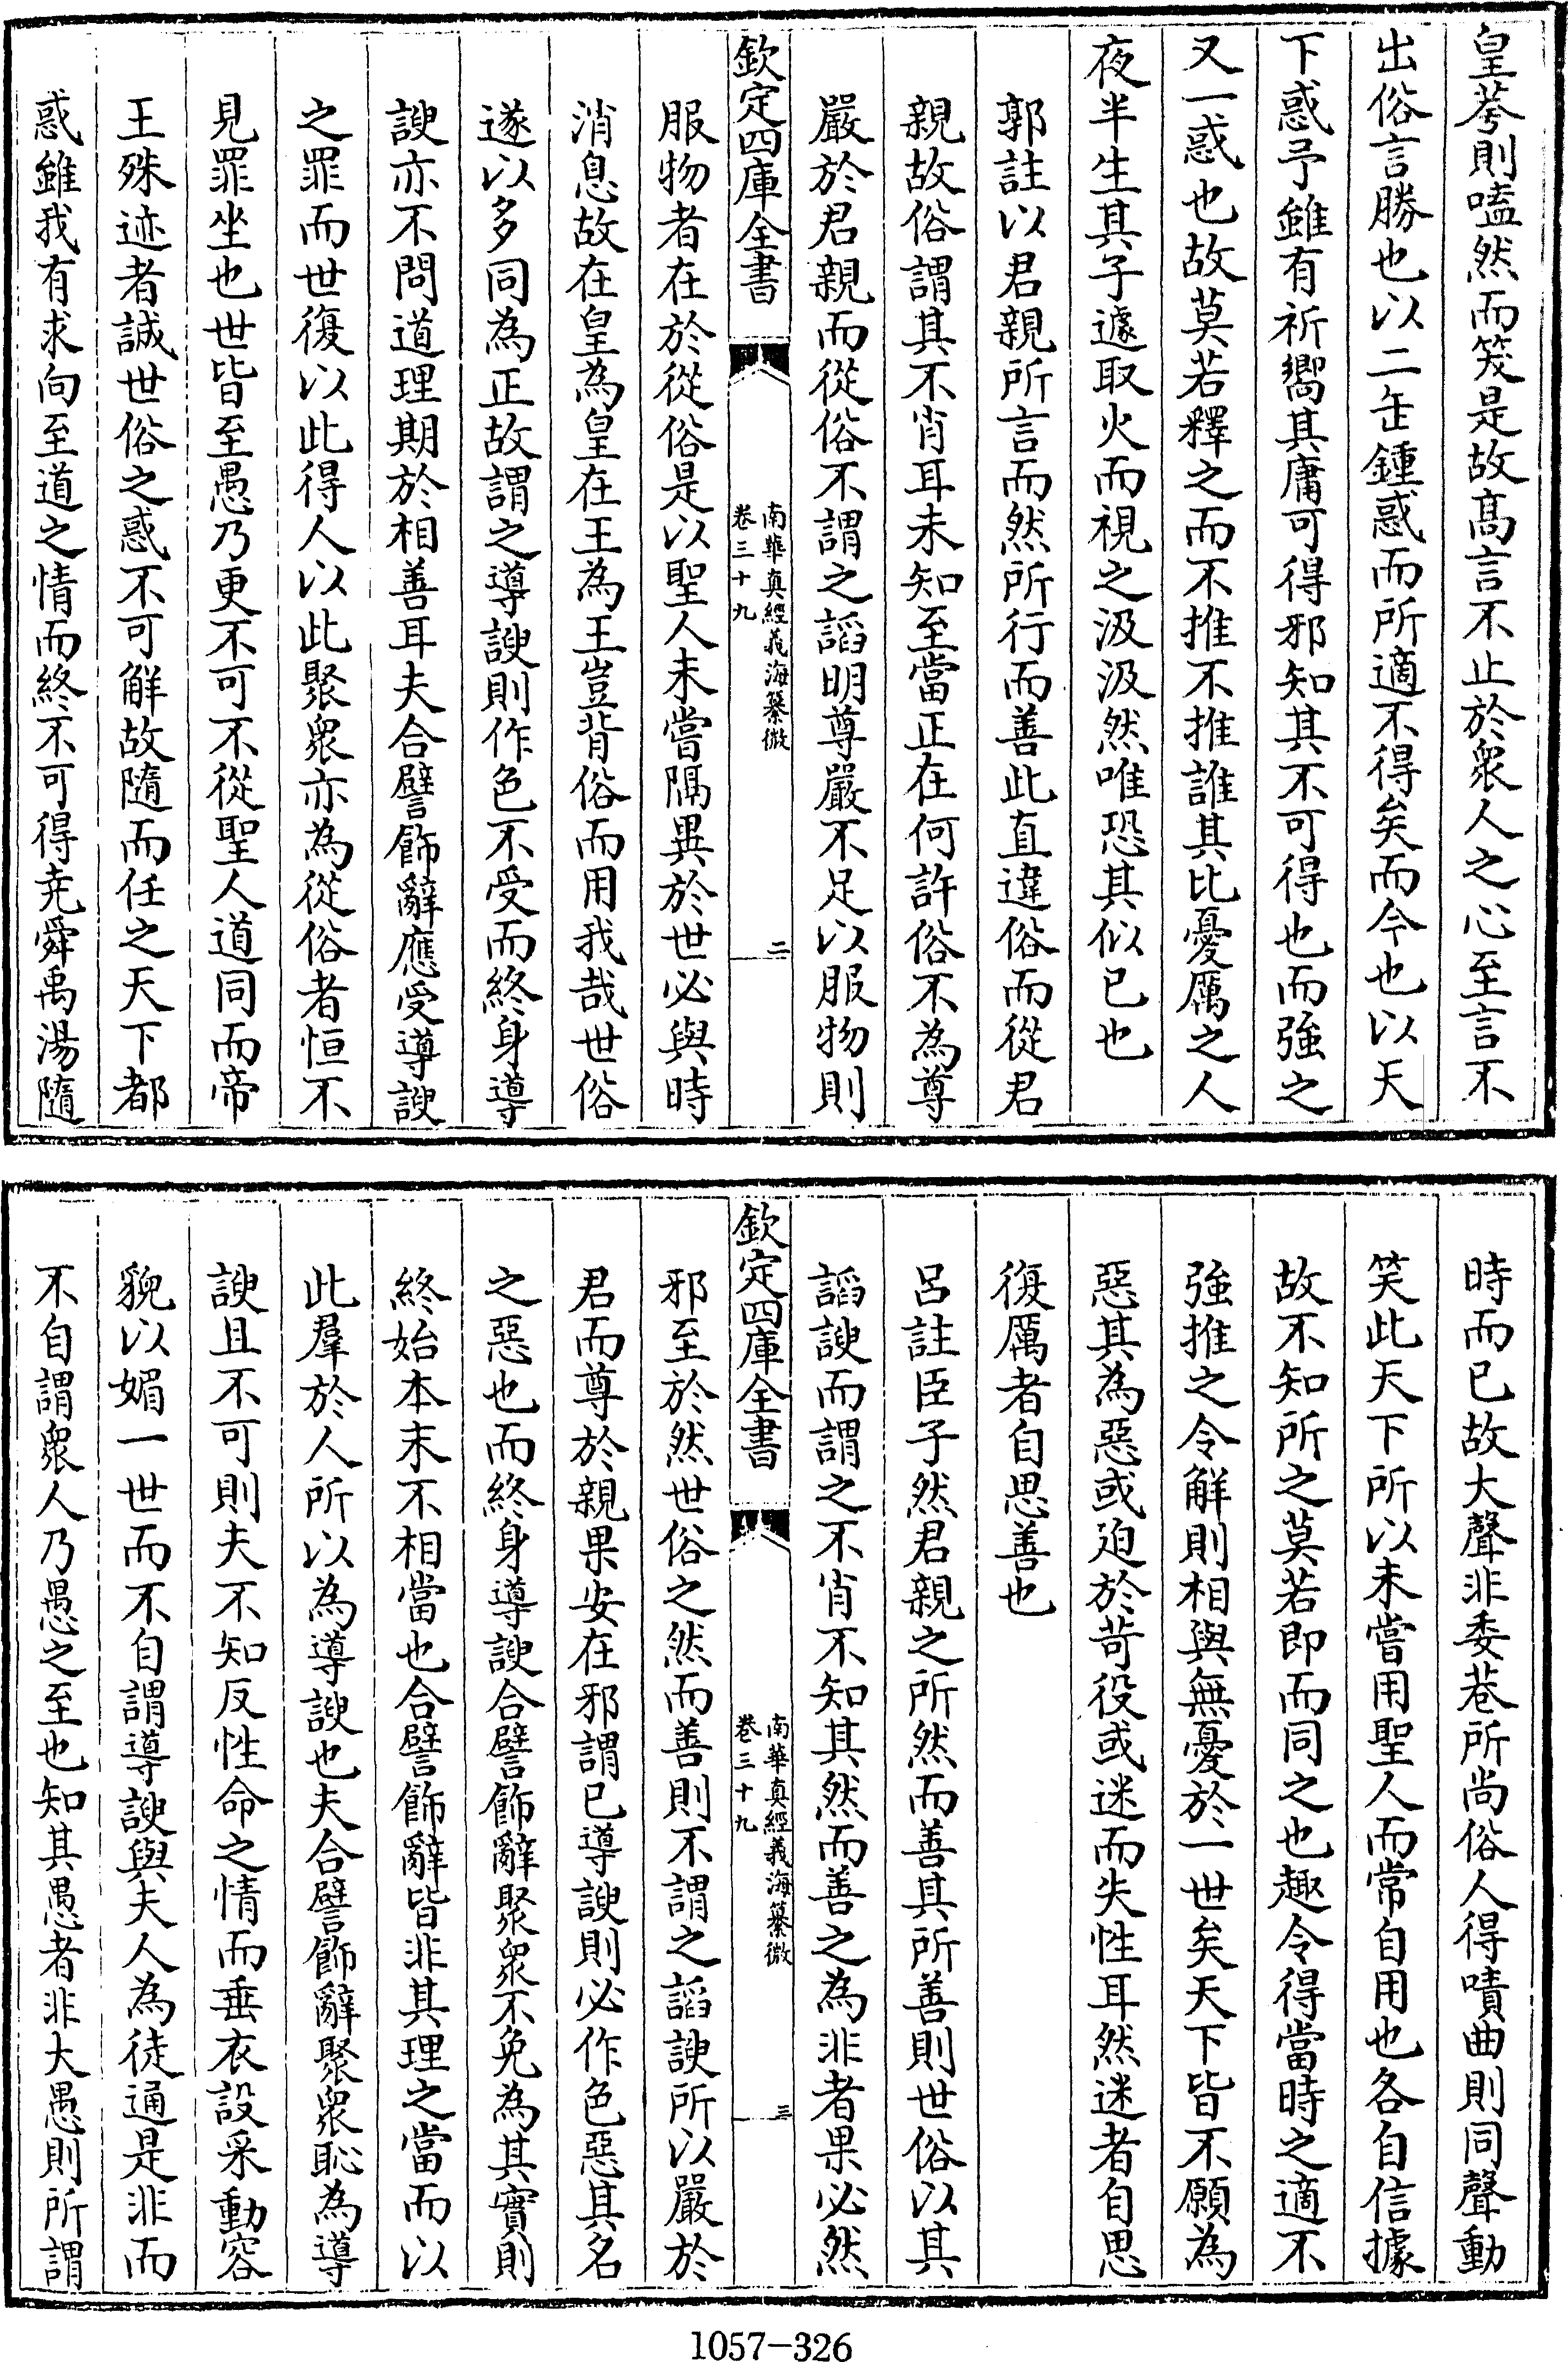 皇荂則嗑然而笑是故高言不止於衆人之心至言不
出俗言勝也以二缶鍾惑而所適不得矣而今也以天
下惑予雖有祈嚮其庸可得邪知其不可得也而強之
又一惑也故莫若釋之而不推不推誰其比憂厲之人
夜半生其子遽取火而視之汲汲然唯恐其似已也
郭註以君親所言而然所行而善此直違俗而從君
親故俗謂其不肖耳未知至當正在何許俗不為尊
嚴於君親而從俗不謂之謟明尊嚴不足以服物則
欽定四庫全書
南華真經義海纂微
卷三十九
二
服物者在於從俗是以聖人未嘗隔異於世必與時
消息故在皇為皇在王為王豈背俗而用我哉世俗
遂以多同為正故謂之導諛則作色不受而終身導
諛亦不問道理期於相善耳夫合譬飾辭應受導諛
之罪而世復以此得人以此聚衆亦為從俗者恒不
見罪坐也世皆至愚乃更不可不從聖人道同而帝
王殊迹者誠世俗之惑不可解故隨而任之天下都
惑雖我有求向至道之情而終不可得堯舜禹湯隨
時而已故大聲非委巷所尚俗人得嘖曲則同聲動
笑此天下所以未嘗用聖人而常自用也各自信據
故不知所之莫若即而同之也趣令得當時之適不
強推之令解則相與無憂於一世矣天下皆不願為
惡其為惡或迫於苛役或迷而失性耳然迷者自思
復厲者自思善也
呂註臣子然君親之所然而善其所善則世俗以其
謟諛而謂之不肖不知其然而善之為非者果必然
欽定四庫全書
南華真經義海纂微
卷三十九
三
邪至於然世俗之然而善則不謂之謟諛所以嚴於
君而尊於親果安在邪謂已導諛則必作色惡其名
之惡也而終身導諛合譬飾辭聚衆不免為其實則
終始本末不相當也合譬飾辭皆非其理之當而以
此羣於人所以為導諛也夫合譬飾辭聚衆恥為導
諛且不可則夫不知反性命之情而垂衣設采動容
貌以媚一世而不自謂導諛與夫人為徒通是非而
不自謂衆人乃愚之至也知其愚者非大愚則所謂
1057-326